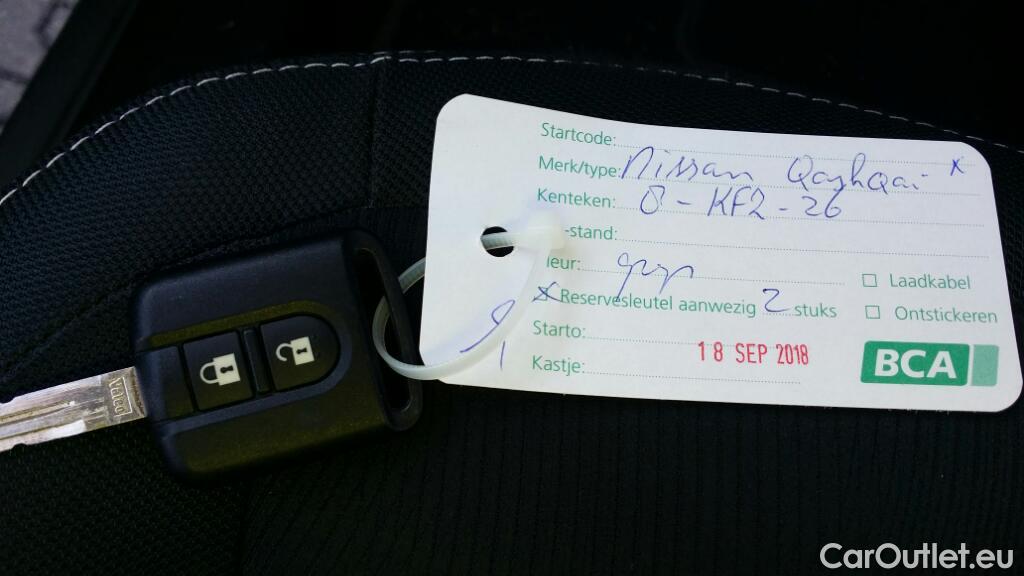 Startcode:
Merk/type: Nissan Qashqai x
Kenteken: 8-KFZ-26
-stand:
leur: grijs
Reservesleutel aanwezig 2 stuks
Starto:
Kastje:
18 SEP 2018
Laadkabel
Ontstickeren
BCA
Valeo
CarOutlet.eu